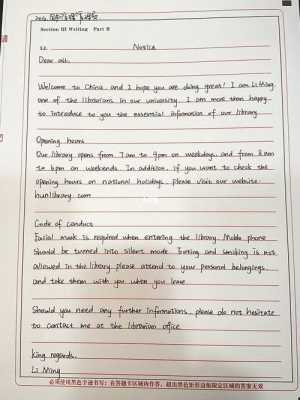 Section III Writing Part B
52.
Notice
Dear all,
Welcome to China and I hope you are doing great! I am Li Ming,
one of the librarians in our university. I am more than happy
to introduce to you the essential information of our library.
Opening hours
Our library opens from 7am to 9pm on weekdays and from 8am
to 6pm on weekends. In addition, if you want to check the
opening hours on national holidays, please visit our website
hunlibrary.com
Code of conduct
Facial mask is required when entering the library. Mobile phone
should be turned into silent mode. Eating and smoking is not
allowed in the library. please attend to your personal belongings
and take them with you when you leave
Should you need any further informations, please do not hesitate
to contact me at the librarian office.
King regards.
Li Ming
必须使用黑色字迹书写；在答题卡区域内作答，超出黑色矩形边框限定区域的答案无效